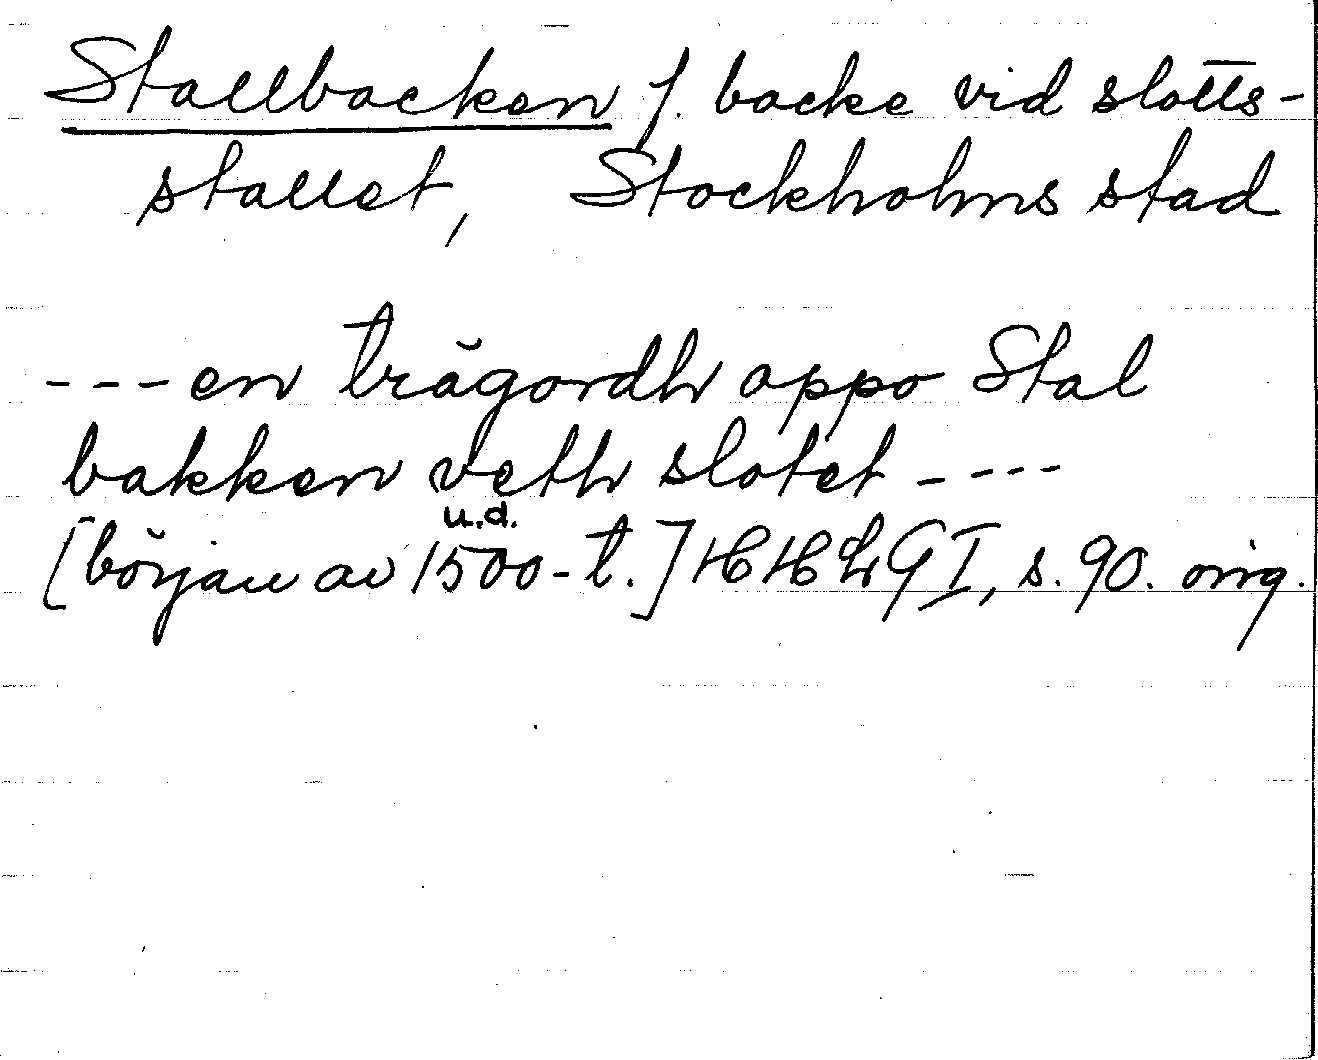 Stallbacken f. backe vid slotts-
stallet, Stockholms stad
---en trägordh oppo Stal
bakken veth slotet ----
u.d.
[början av 1500-t.] HHLG I, s. 90. orig.